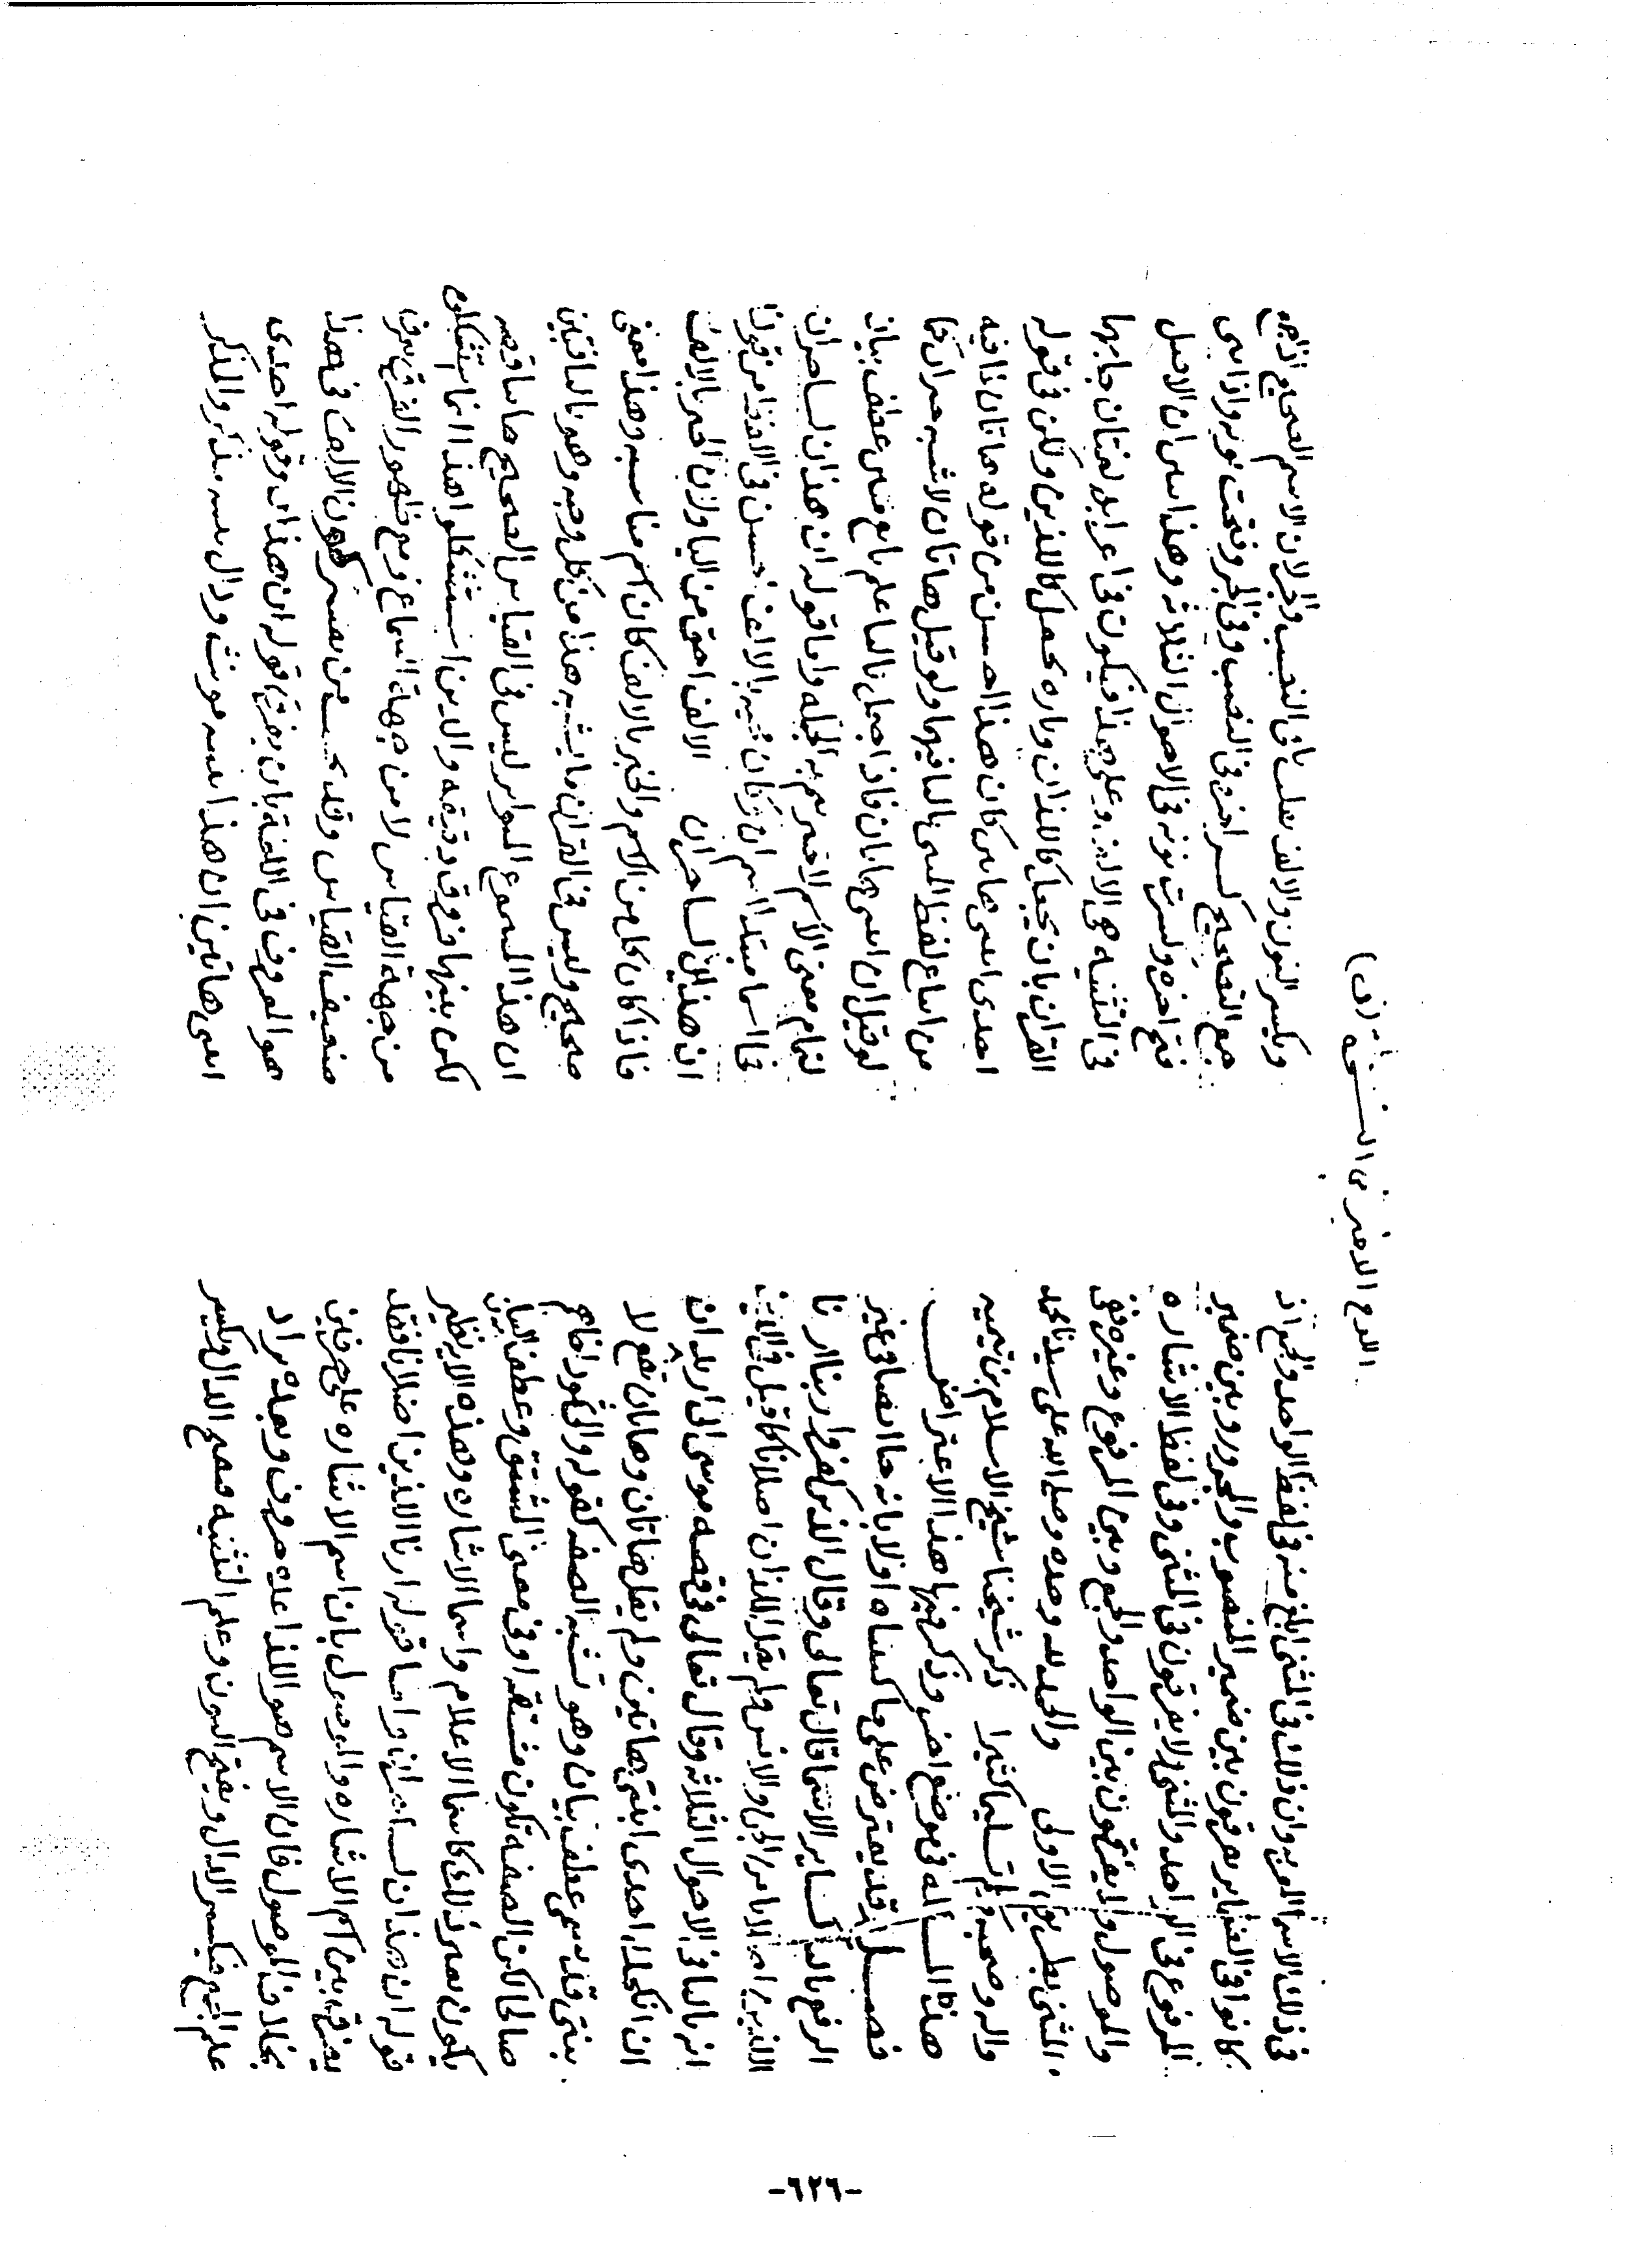 اللوح الاخير من النسخة (ق)
في ذلك الاسما المبهمه وان ذلك في المثنى ابلغ منه في لفظ الواحد والجمع اذ
كانوا في الضماير يفرقون بين ضمير المنصوب والمجرور وبين ضمير
المرفوع في الواحد والمثنى ولا يفرقون في المثنى وفي لفظ الاشاره
والموصول ولا يفرقون بين الواحد والجمع وبين المرفوع وغيره ففي
المثنى بطريق الاولى والحمد لله وحده وصلى الله على سيدنا محمد
واله وصحبه وسلم تسليما كثيرا ذكر شيخنا شيخ الاسلام بن تيميه
هذه المساله في موضع اخر وذكر فيها هذا الاعتراض
فصل وقد يعترض على ما كتبناه اولا بانه جا ايضا في غير
الرفع باليا كساير الاسما قال تعالى وقال الذين كفروا ربنا ارنا
اللذين اضلانا من الجن والانس ولم يقل اللذان اضلانا كما قيل في الذين
انه باليا في الاحوال الثلاثه وقال تعالى في قصه موسى اني اريد ان
ان انكحك احدى ابنتي هاتين ولم يقل هاتان وهاتان تبع لا
بنتي وقد يسمى عطف بيان وهو يشبه الصفه كقوله
صالحا لكن الصفه تكون مشتقه او في معنى المشتق وعطف البيان
يكون بغير ذلك كاسما الاعلام واسما الاشاره وهذه الايه نظير
قوله ان هذان لساحران واما قوله ارنا اللذين اضلانا فقد
يفرق بين اسم الاشاره والموصول بان اسم الاشاره على حرفين
بخلاف الموصول فان الاسم هو اللذا عده حروف وبعده يزاد
علم الجمع فتكسر الذال وبفتح النون وعلم التثنيه فتفتح الذال وبكسر
وبكسر النون والالف تقلب يا في النصب والجر لان الاسم الصحيح اذا جمع
جمع التصحيح كسر اخره في النصب وفي الجر وفتحت نونه واذا ثني
فتح اخره وكسرت نونه في الاحوال الثلاثه وهذا يبين ان الاصل
في التثنيه هي الالف وعلى هذا فيكون في اعرابه لغتان جا بهما
القران تاره يجعل كاللذان وتاره يجعل كاللذين ولكن في قوله
احدى ابنتي هاتين كان هذا احسن من قوله هاتان لما فيه
من اتباع لفظ المثنى باليا فيهما ولو قيل هاتان لاشبه كما
لو قيل ان ابنتي هاتان فاذا جعل باليا علم تابع مبين عطف بيان
لتمام معنى الاسم لا خبر تتم به الجمله واما قوله ان هذان لساحران
فجا اسما مبتدا اسم ان وكان مجيه بالالف احسن في اللفظ من قولنا
ان هذين لساحران الالف اخف من اليا ولان الخبر بالالف
فاذا كان كل من الاسم والخبر بالالف كان اتم مناسبه وهذا معنى
صحيح وليس في القران ما يشبه هذا من كل وجه وهو باليا فتبين
ان هذا المسموع المتواتر ليس في القياس الصحيح ما يناقضه
لكن بينهما فروق دقيقه والذين استشكلوا هذا انما استشكلوه
من جهة القياس لا من جهة السماع ومع ظهور الفرق يعرف
ضعيف القياس وقد يجيب من يعتبر كون الالف في هذا
هو المعروف في اللغة بان يفرق بين قوله ان هذان وقوله احدى
ابنتي هاتين ان هذا تثنيه مونث وذاك تثنيه مذكر والمذكر
-٦٢٦-